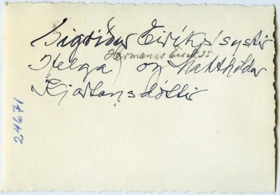 Sigríður Eiríksd systir
Hermanns Eirikss
Helga og Matthildur
Kjartansdóttir
24671